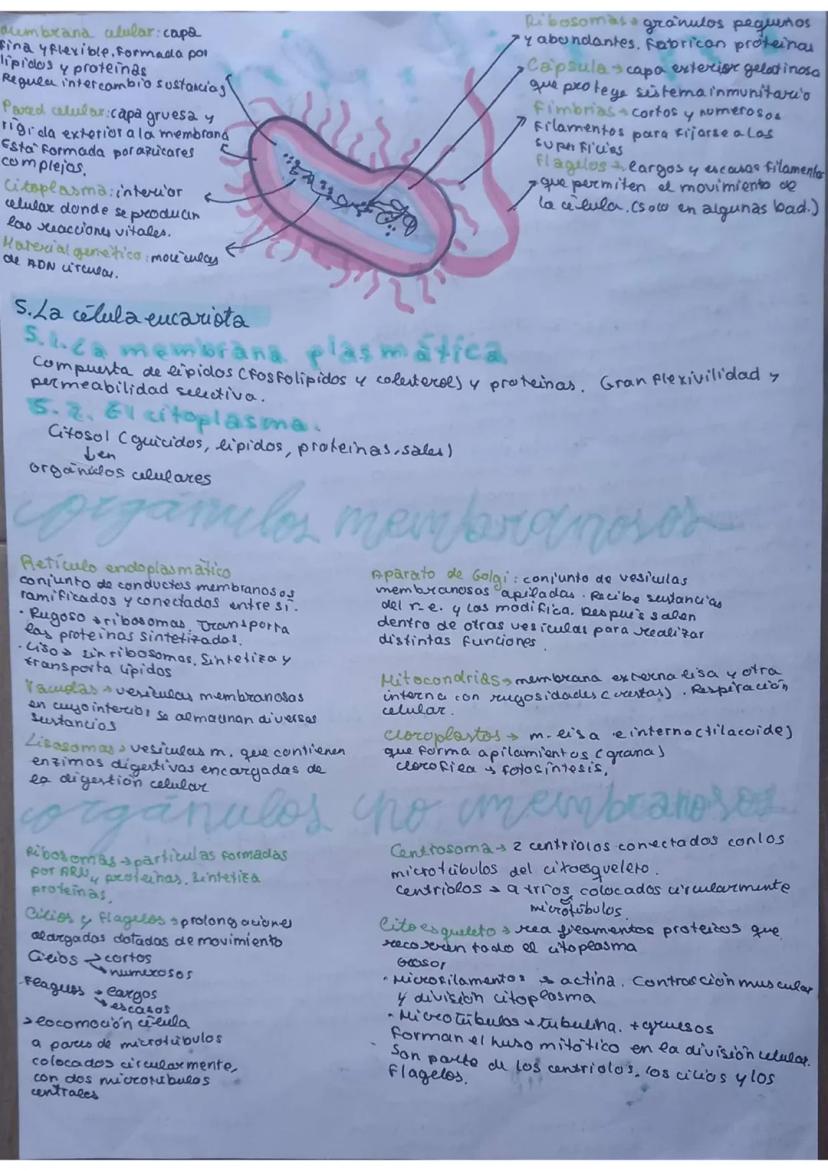 Membrana celular: capa
fina y flexible. Formada por
lípidos y proteínas
Regula intercambio sustancias
Pared celular: capa gruesa y
rígida exterior a la membrana
Está formada por azúcares
complejos.
Citoplasma: interior
celular donde se producen
las reacciones vitales.
Material genético: moléculas
de ADN circular.
Ribosomas → gránulos pequeños
y abundantes. Fabrican proteínas
Cápsula → capa exterior gelatinosa
que protege sistema inmunitario
Fimbrias → cortos y numerosos
filamentos para fijarse a las
superficies
Flagelos → largos y escasos filamentos
que permiten el movimiento de
la célula. (solo en algunas bad.)
5. La célula eucariota
5.1. La membrana plasmática
Compuesta de lípidos (fosfolípidos y colesterol) y proteínas. Gran flexivilidad y
permeabilidad selectiva.
5.2. El citoplasma.
Citosol (glúcidos, lípidos, proteínas, sales)
↓ en
orgánulos celulares
orgánulos membranosos
Retículo endoplasmático
conjunto de conductos membranosos
ramificados y conectados entre sí.
· Rugoso → ribosomas. Transporta
las proteínas sintetizadas.
· Liso → sin ribosomas. Sintetiza y
transporta lípidos
Vacuolas → vesículas membranosas
en cuyo interior se almacenan diversas
sustancias
Lisosomas → vesículas m. que contienen
enzimas digestivas encargadas de
la digestión celular
Aparato de Golgi: conjunto de vesículas
membranosas apiladas. Recibe sustancias
del r.e. y las modifica. Después salen
dentro de otras vesículas para realizar
distintas funciones.
Mitocondrias → membrana externa lisa y otra
interna con rugosidades (crestas). Respiración
celular.
Cloroplastos → m. lisa e interna (tilacoide)
que forma apilamientos (grana)
clorofila → fotosíntesis.
orgánulos no membranosos
Ribosomas → partículas formadas
por ARN y proteínas. Sintetiza
proteínas.
Cilios y flagelos → prolongaciones
alargadas dotadas de movimiento
Cilios → cortos
→ numerosos
Flagelos → largos
→ escasos
→ locomoción célula
a pares de microtúbulos
colocados circularmente,
con dos microtúbulos
centrales
Centrosoma → 2 centriolos conectados con los
microtúbulos del citoesqueleto.
centriolos → a tríos colocados circularmente
microtúbulos.
Citoesqueleto → red filamentos proteicos que
recorren todo el citoplasma
· Microfilamentos → actina. Contracción muscular
y división citoplasma
· Microtúbulos → tubulina. + gruesos
Forman el huso mitótico en la división celular.
Son parte de los centriolos, los cilios y los
flagelos.